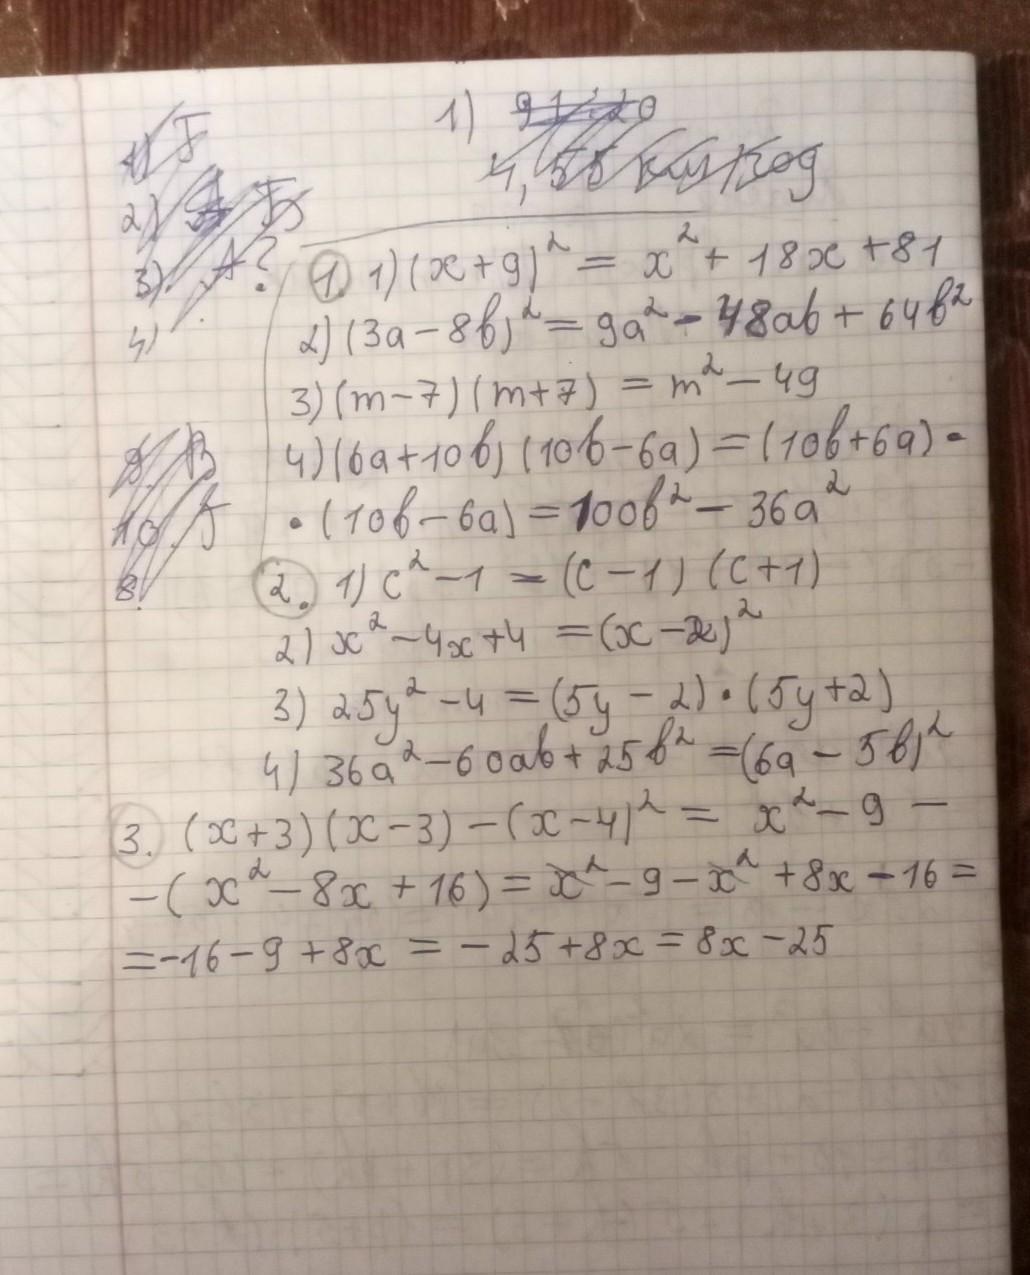 1) 91:20
4,55 км/год
1) Б
2) Б
3) А?
4)
1. 1) (x+9)² = x² + 18x + 81
2) (3a - 8b)² = 9a² - 48ab + 64b²
3) (m-7)(m+7) = m² - 49
4) (6a+10b)(10b-6a) = (10b+6a) •
• (10b-6a) = 100b² - 36a²
9. В
10. Б
8.
2. 1) c² - 1 = (c-1)(c+1)
2) x² - 4x + 4 = (x-2)²
3) 25y² - 4 = (5y - 2) • (5y+2)
4) 36a² - 60ab + 25b² = (6a - 5b)²
3. (x+3)(x-3) - (x-4)² = x² - 9 -
- (x² - 8x + 16) = x² - 9 - x² + 8x - 16 =
= -16 - 9 + 8x = -25 + 8x = 8x - 25